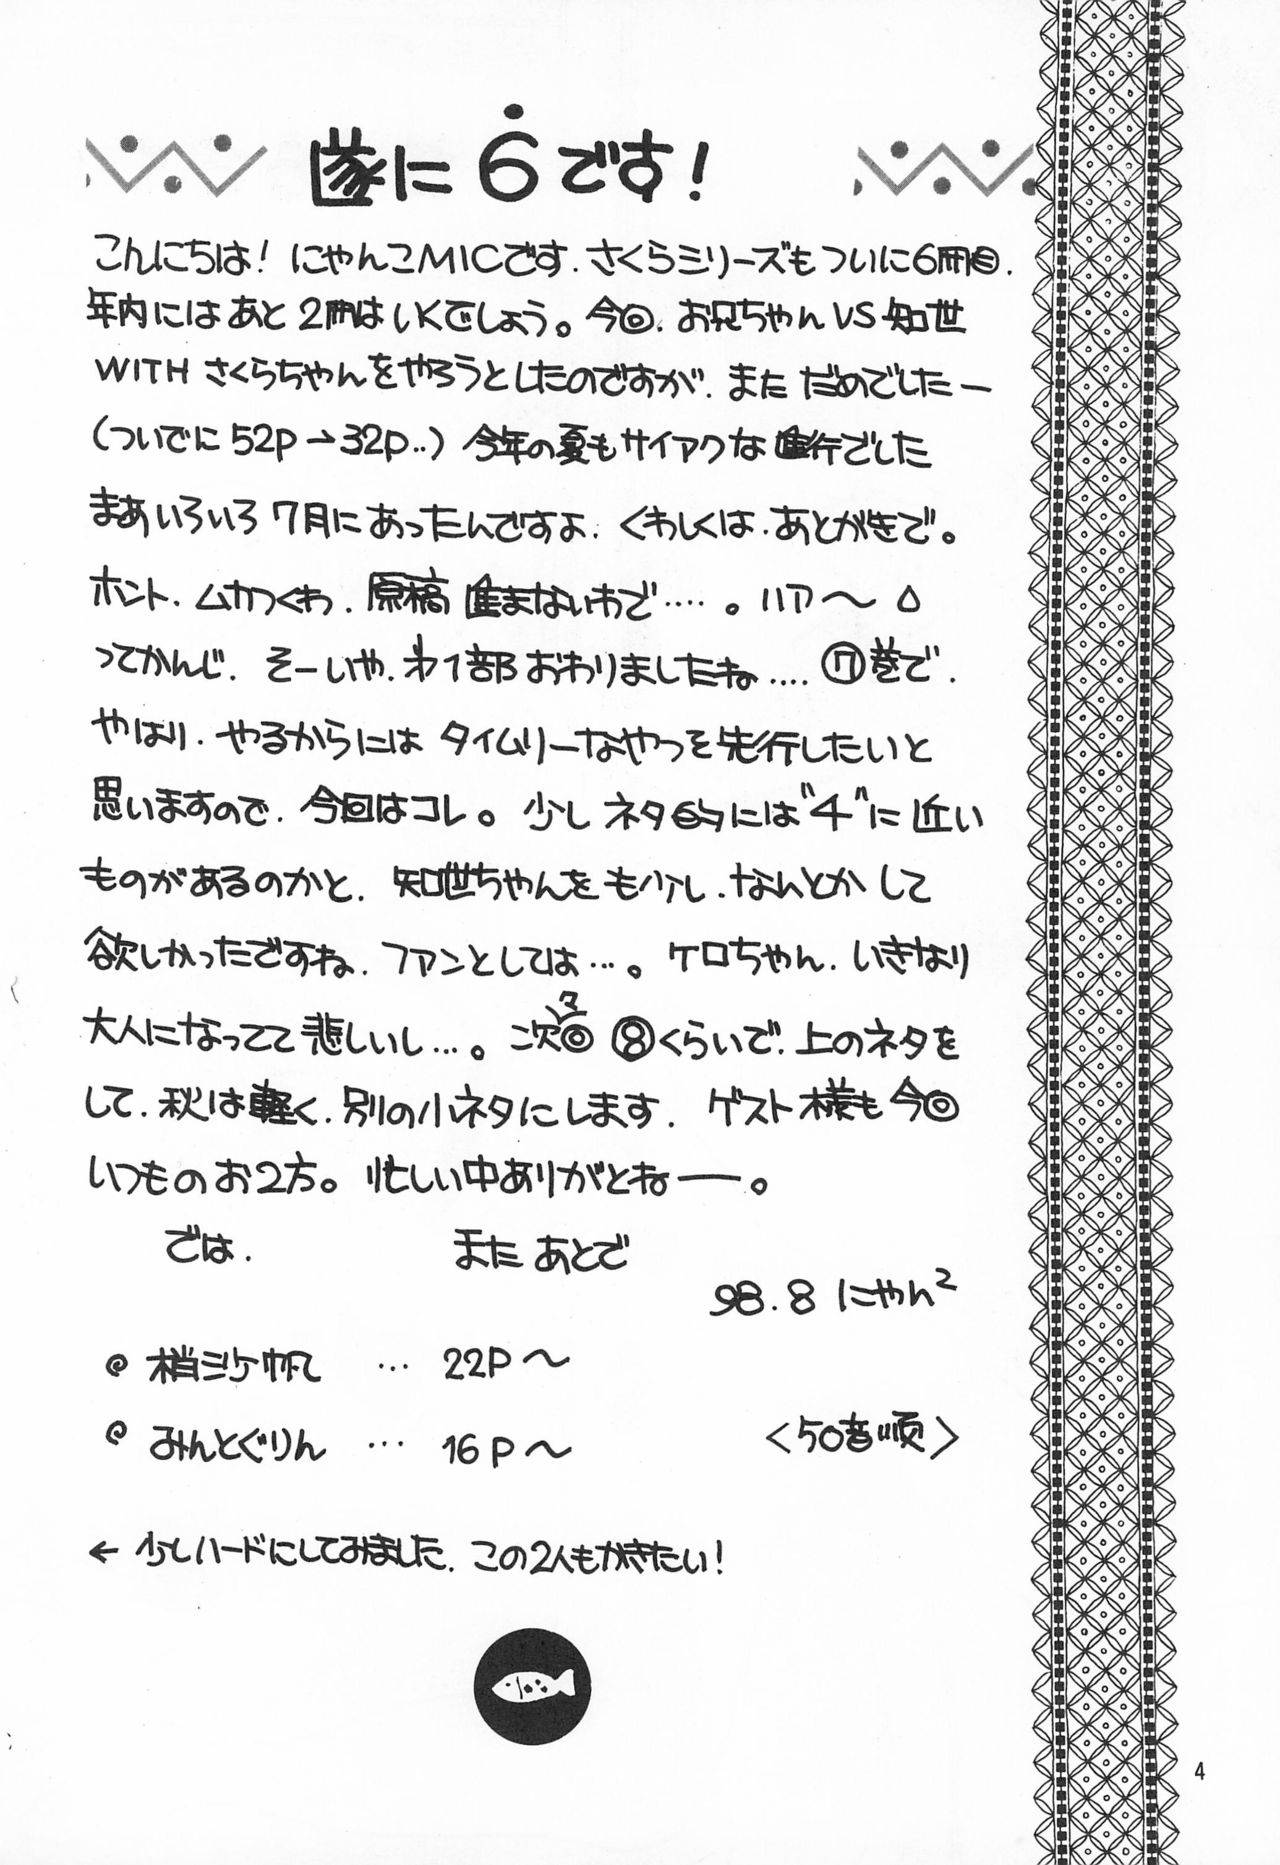 遂に6です!
こんにちは! にゃんこMICです. さくらシリーズもついに6冊目.
年内にはあと2冊はいくでしょう。今回. お兄ちゃんVS知世
WITH さくらちゃんをやろうとしたのですが. まただめでしたー
(ついでに52P→32P‥) 今年の夏もサイアクな進行でした
まあいろいろ7月にあったんですよ. くわしくは. あとがきで。
ホント. ムカつくわ. 原稿進まないわで‥‥。ハア〜
ってかんじ. そーいや. 才1部おわりましたね‥‥ ⑦巻で.
やはり. やるからにはタイムリーなやつを先行したいと
思いますので. 今回はコレ。少しネタ的には"4"に近い
ものがあるのかと. 知世ちゃんをも少し. なんとかして
欲しかったですね. ファンとしては…。ケロちゃん. いきなり
大人になってて悲しいし…。次々回⑧くらいで. 上のネタを
して. 秋は軽く. 別の小ネタにします. ゲスト様も今回
いつものお2方。忙しい中ありがとねー。
では. またあとで
98.8 にゃん²
梢ミケ帆 … 22P〜
みんとぐりん … 16P〜
<50音順>
← 少しハードにしてみました. この2人もかきたい!
4